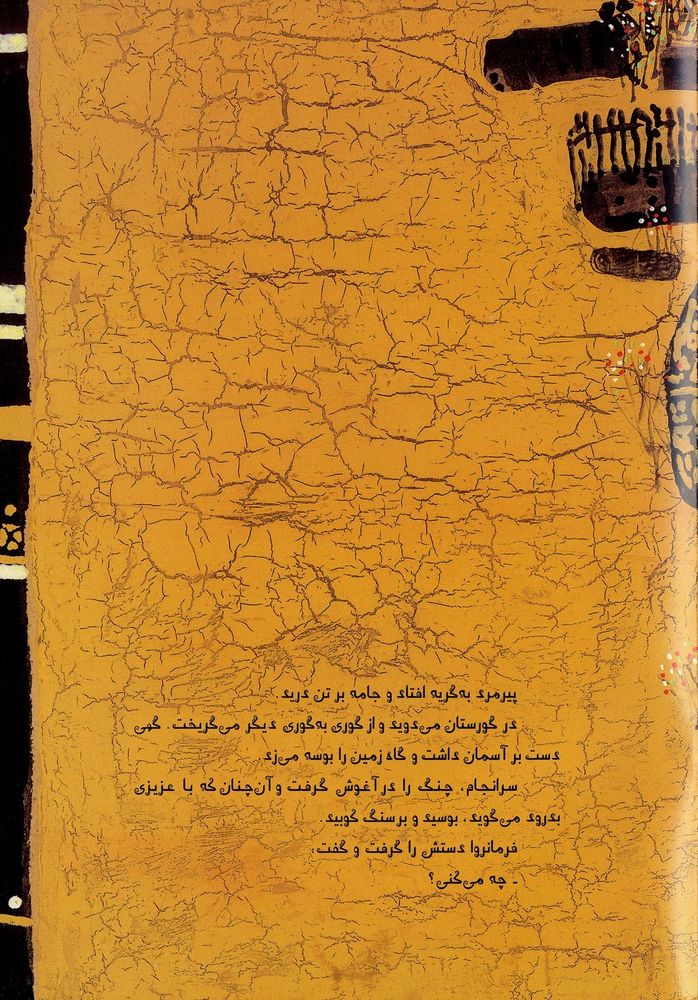 پیرمرد به‌گریه افتاد و جامه بر تن درید.
در گورستان می‌دوید و از گوری به‌گوری دیگر می‌گریخت. گهی
دست بر آسمان داشت و گاه زمین را بوسه می‌زد
سرانجام، چنگ را در آغوش گرفت و آن‌چنان که با عزیزی
بدرود می‌گوید، بوسید و بر سنگ کوبید.
فرمانروا دستش را گرفت و گفت:
ـ چه می‌کنی؟